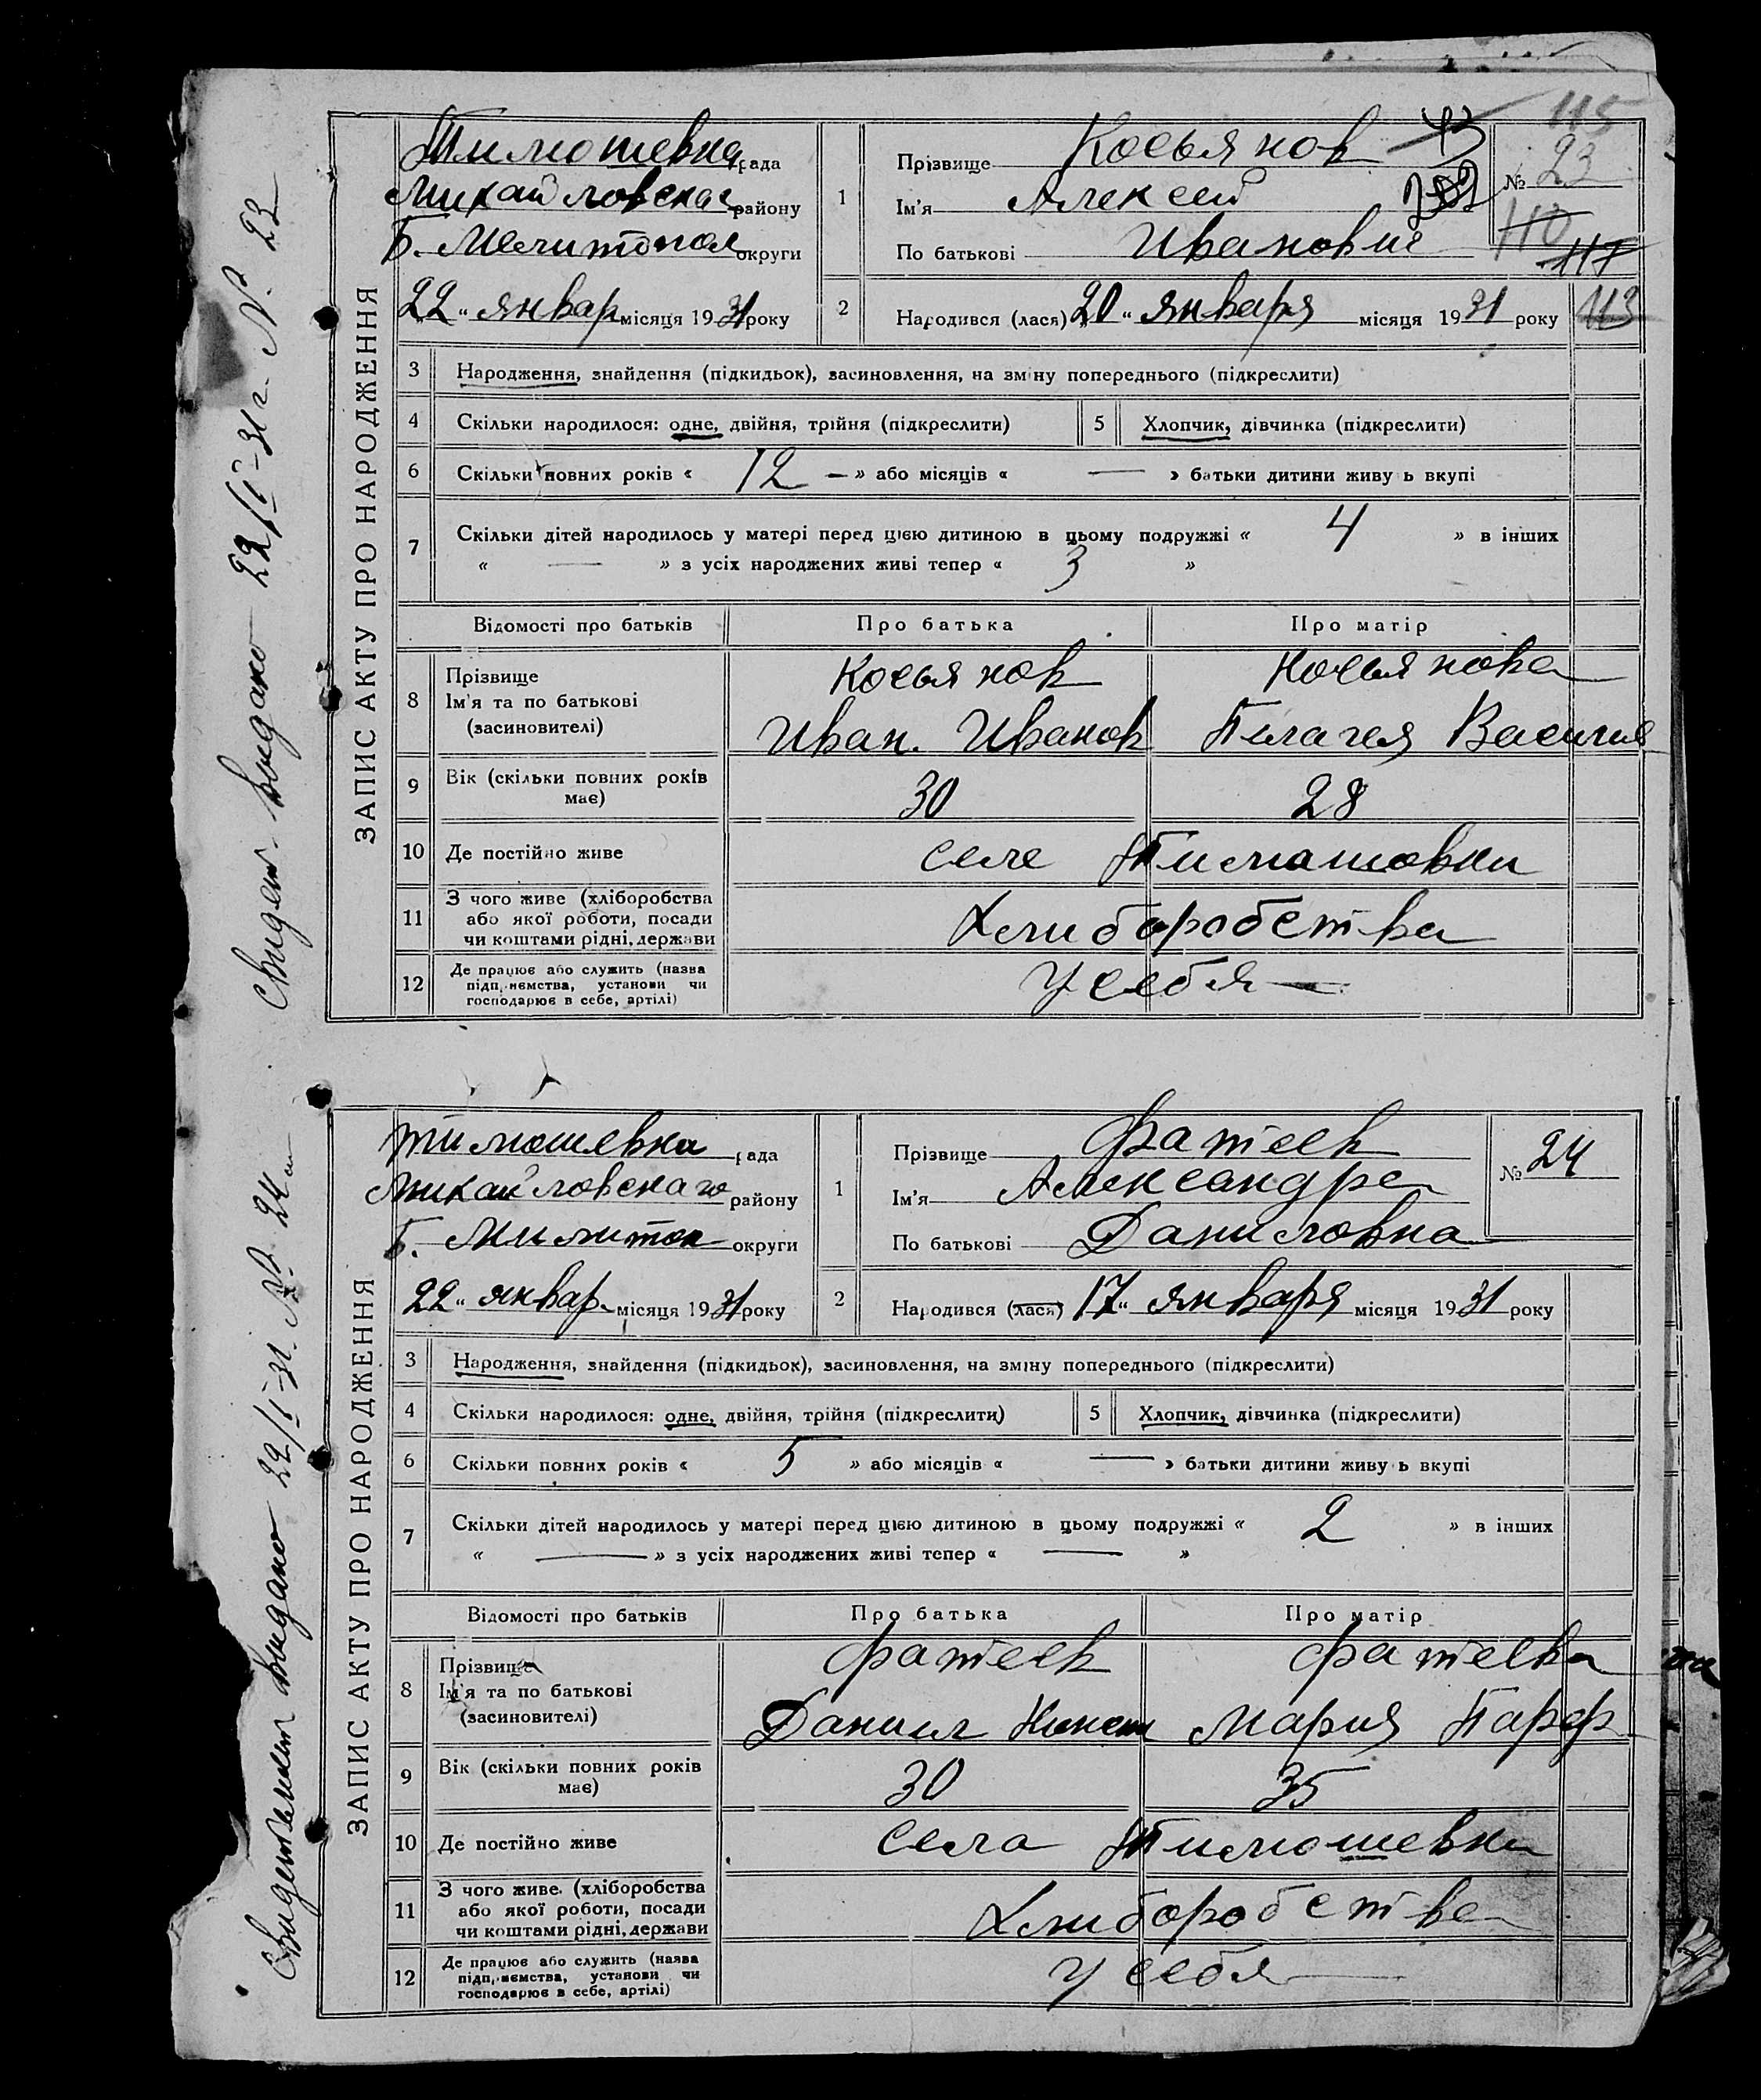 115
ЗАПИС АКТУ ПРО НАРОДЖЕННЯ
Тимошевка рада
Михайловскаг району
Б. Мелитопол округи
22 " январ місяця 1931 року
1
Прізвище Косьянов
Ім'я Алексей
По батькові Иванович
№ 23
110
117
113
2
Народився (лася) 20 " января місяця 1931 року
3 Народження, знайдення (підкидьок), засиновлення, на зміну попереднього (підкреслити)
4 Скільки народилося: одне, двійня, трійня (підкреслити) 5 Хлопчик, дівчинка (підкреслити)
6 Скільки повних років « 12 — » або місяців « — » батьки дитини живуь вкупі
7 Скільки дітей народилось у матері перед цією дитиною в цьому подружжі « 4 » в інших
« — » з усіх народжених живі тепер « 3 »
Відомості про батьків Про батька Про матір
8 Прізвище Косьянов Косьянова
Ім'я та по батькові
(засиновителі) Иван. Иванов Пелагея Василив
9 Вік (скільки повних років має) 30 28
10 Де постійно живе селе Тимашовки
11 З чого живе (хліборобства
або якої роботи, посади
чи коштами рідні, держави Хлиборобства
12 Де працює або служить (назва
підприємства, установи чи
господарює в себе, артілі) У себя
Свидет. выдано 22/I-31г. №. 23
ЗАПИС АКТУ ПРО НАРОДЖЕННЯ
Тимошевка рада
Михайловскаго району
Б. Милитоп округи
22 " январ. місяця 1931 року
1
Прізвище Фатеев
Ім'я Александра
По батькові Даниловна
№ 24
2
Народився (лася) 17 " января місяця 1931 року
3 Народження, знайдення (підкидьок), засиновлення, на зміну попереднього (підкреслити)
4 Скільки народилося: одне, двійня, трійня (підкреслити) 5 Хлопчик, дівчинка (підкреслити)
6 Скільки повних років « 5 » або місяців « — » батьки дитини живуь вкупі
7 Скільки дітей народилось у матері перед цією дитиною в цьому подружжі « 2 » в інших
« — » з усіх народжених живі тепер « — »
Відомості про батьків Про батька Про матір
8 Прізвище Фатеев Фатеева
Ім'я та по батькові
(засиновителі) Даниил Мария Парф
9 Вік (скільки повних років має) 30 35
10 Де постійно живе села Тимошевки
11 З чого живе. (хліборобства
або якої роботи, посади
чи коштами рідні, держави Хлиборобства
12 Де працює або служить (назва
підприємства, установи чи
господарює в себе, артілі) У себя
выдано 22/I-31. №. 24